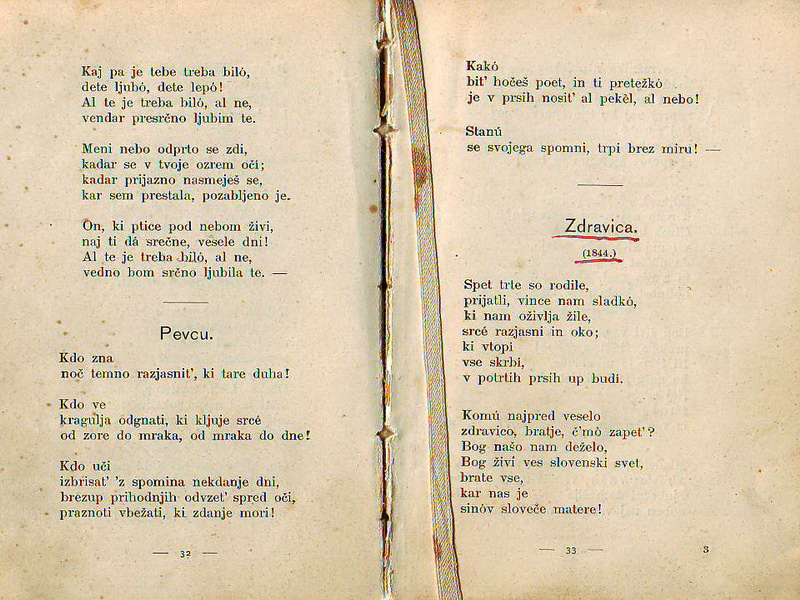 Kaj pa je tebe treba biló,
dete ljubó, dete lepó!
Al te je treba biló, al ne,
vendar presrčno ljubim te.
Meni nebo odprto se zdi,
kadar se v tvoje ozrem oči;
kadar prijazno nasmeješ se,
kar sem prestala, pozabljeno je.
On, ki ptice pod nebom živi,
naj ti dá srečne, vesele dni!
Al te je treba biló, al ne,
vedno bom srčno ljubila te. —
Pevcu.
Kdo zna
noč temno razjasnit', ki tare duha!
Kdo ve
kragulja odgnati, ki kljuje srcé
od zore do mraka, od mraka do dne!
Kdo uči
izbrisat' 'z spomina nekdanje dni,
brezup prihodnjih odvzet' spred oči,
praznoti vbežati, ki zdanje mori!
— 32 —
Kakó
bit' hočeš poet, in ti pretežkó
je v prsih nosit' al pekèl, al nebo!
Stanú
se svojega spomni, trpi brez miru! —
Zdravica.
(1844.)
Spet trte so rodile,
prijatli, vince nam sladkó,
ki nam oživlja žile,
srcé razjasni in oko;
ki vtopi
vse skrbi,
v potrtih prsih up budi.
Komú najpred veselo
zdravico, bratje, č'mò zapet'?
Bog našo nam deželo,
Bog živi ves slovenski svet,
brate vse,
kar nas je
sinóv sloveče matere!
— 33 —
3